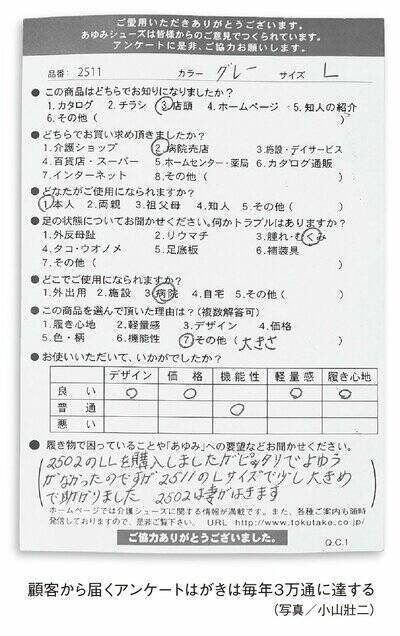 ご愛用いただきありがとうございます。
あゆみシューズは皆様からのご意見でつくられています。
アンケートに是非、ご協力お願いします。
品番: 2511 カラー グレー サイズ L
● この商品はどちらでお知りになりましたか?
1.カタログ 2.チラシ 3.店頭 4.ホームページ 5.知人の紹介
6.その他( )
● どちらでお買い求め頂きましたか?
1.介護ショップ 2.病院売店 3.施設・デイサービス
4.百貨店・スーパー 5.ホームセンター・薬局 6.カタログ通販
7.インターネット 8.その他( )
● どなたがご使用になられますか?
1.本人 2.両親 3.祖父母 4.知人 5.その他( )
● 足の状態についてお聞かせください。何かトラブルはありますか?
1.外反母趾 2.リウマチ 3.腫れ・むくみ
4.タコ・ウオノメ 5.足底板 6.補装具
7.その他( )
● どこでご使用になられますか?
1.外出用 2.施設 3.病院 4.自宅 5.その他( )
● この商品を選んで頂いた理由は?(複数解答可)
1.履き心地 2.軽量感 3.デザイン 4.価格
5.色・柄 6.機能性 7.その他(大きさ )
● お使いいただいて、いかがでしたか?
デザイン 価格 機能性 軽量感 履き心地
良い ○ ○ ○ ○
普通 ○
悪い
● 履き物で困っていることや「あゆみ」への要望などお聞かせください。
(2502のLLを購入しましたがピッタリでよゆう
がなかったのですが2511のLサイズで少し大きめ
で助かりました 2502は妻がはきます)
ホームページでは介護シューズに関する情報が満載です。また、各種ご案内も随時
発信しておりますので、是非ご覧下さい。 URL http://www.tokutake.co.jp/
ご協力ありがとうございました。
Q.C.1
顧客から届くアンケートはがきは毎年3万通に達する
(写真/小山壯二)